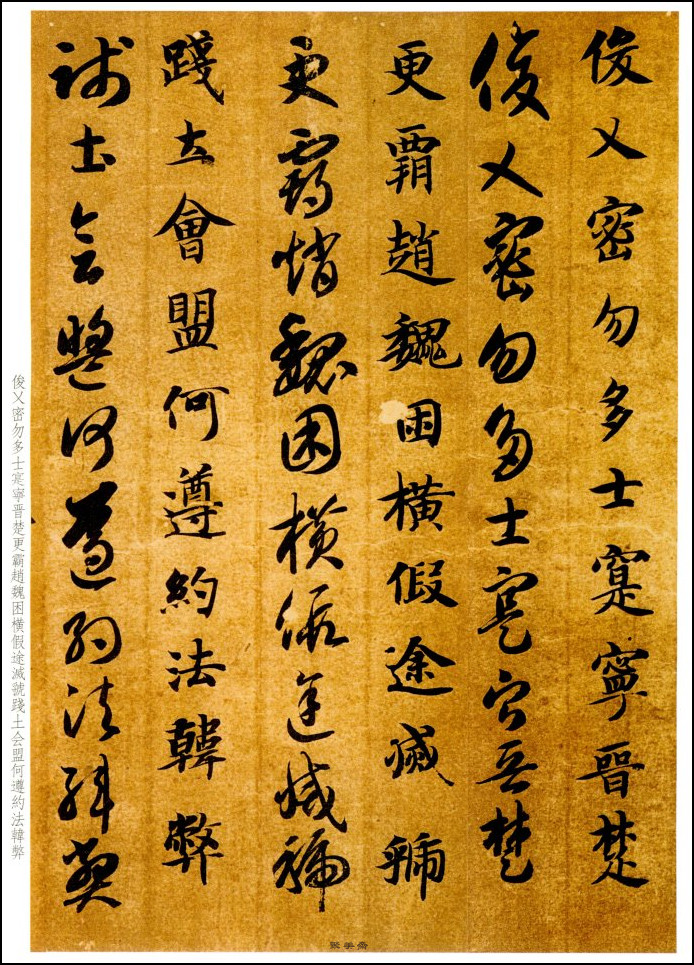 俊乂密勿多士寔寧晋楚
俊乂密勿多士寔寧晋楚
更霸趙魏困橫假途滅虢
更霸趙魏困橫假途滅虢
踐土會盟何遵約法韓弊
踐土會盟何遵約法韓弊
俊乂密勿多士寔寧晋楚更霸趙魏困橫假途滅號踐土会盟何遵約法韓弊